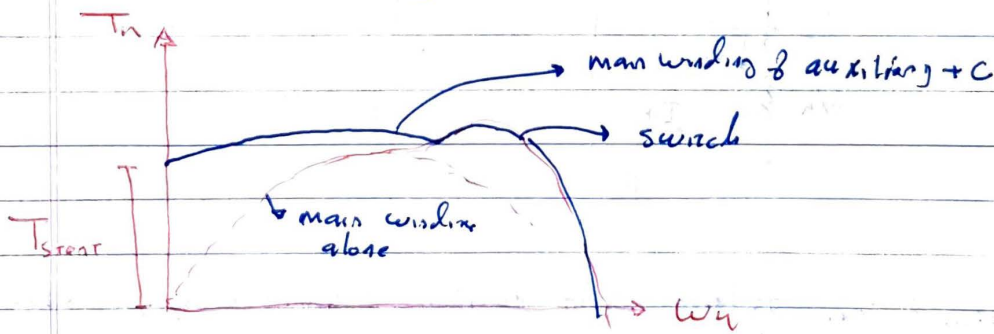 Tn
main winding & auxiliary + C
switch
main winding
alone
Tstart